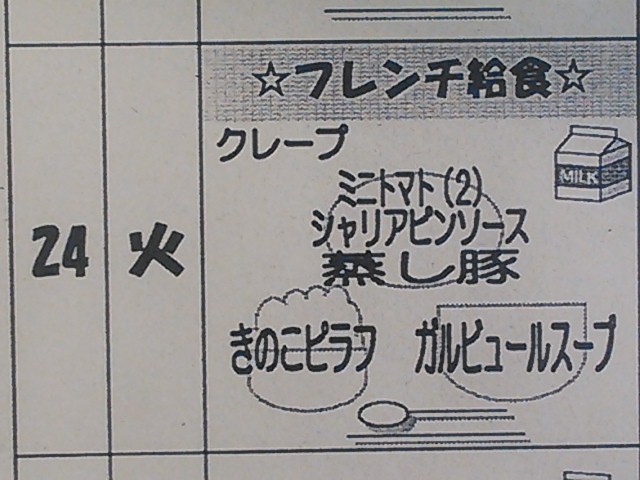 ☆フレンチ給食☆
クレープ
MILK
ミニトマト(2)
シャリアピンソース
蒸し豚
24 火
きのこピラフ ガルビュールスープ